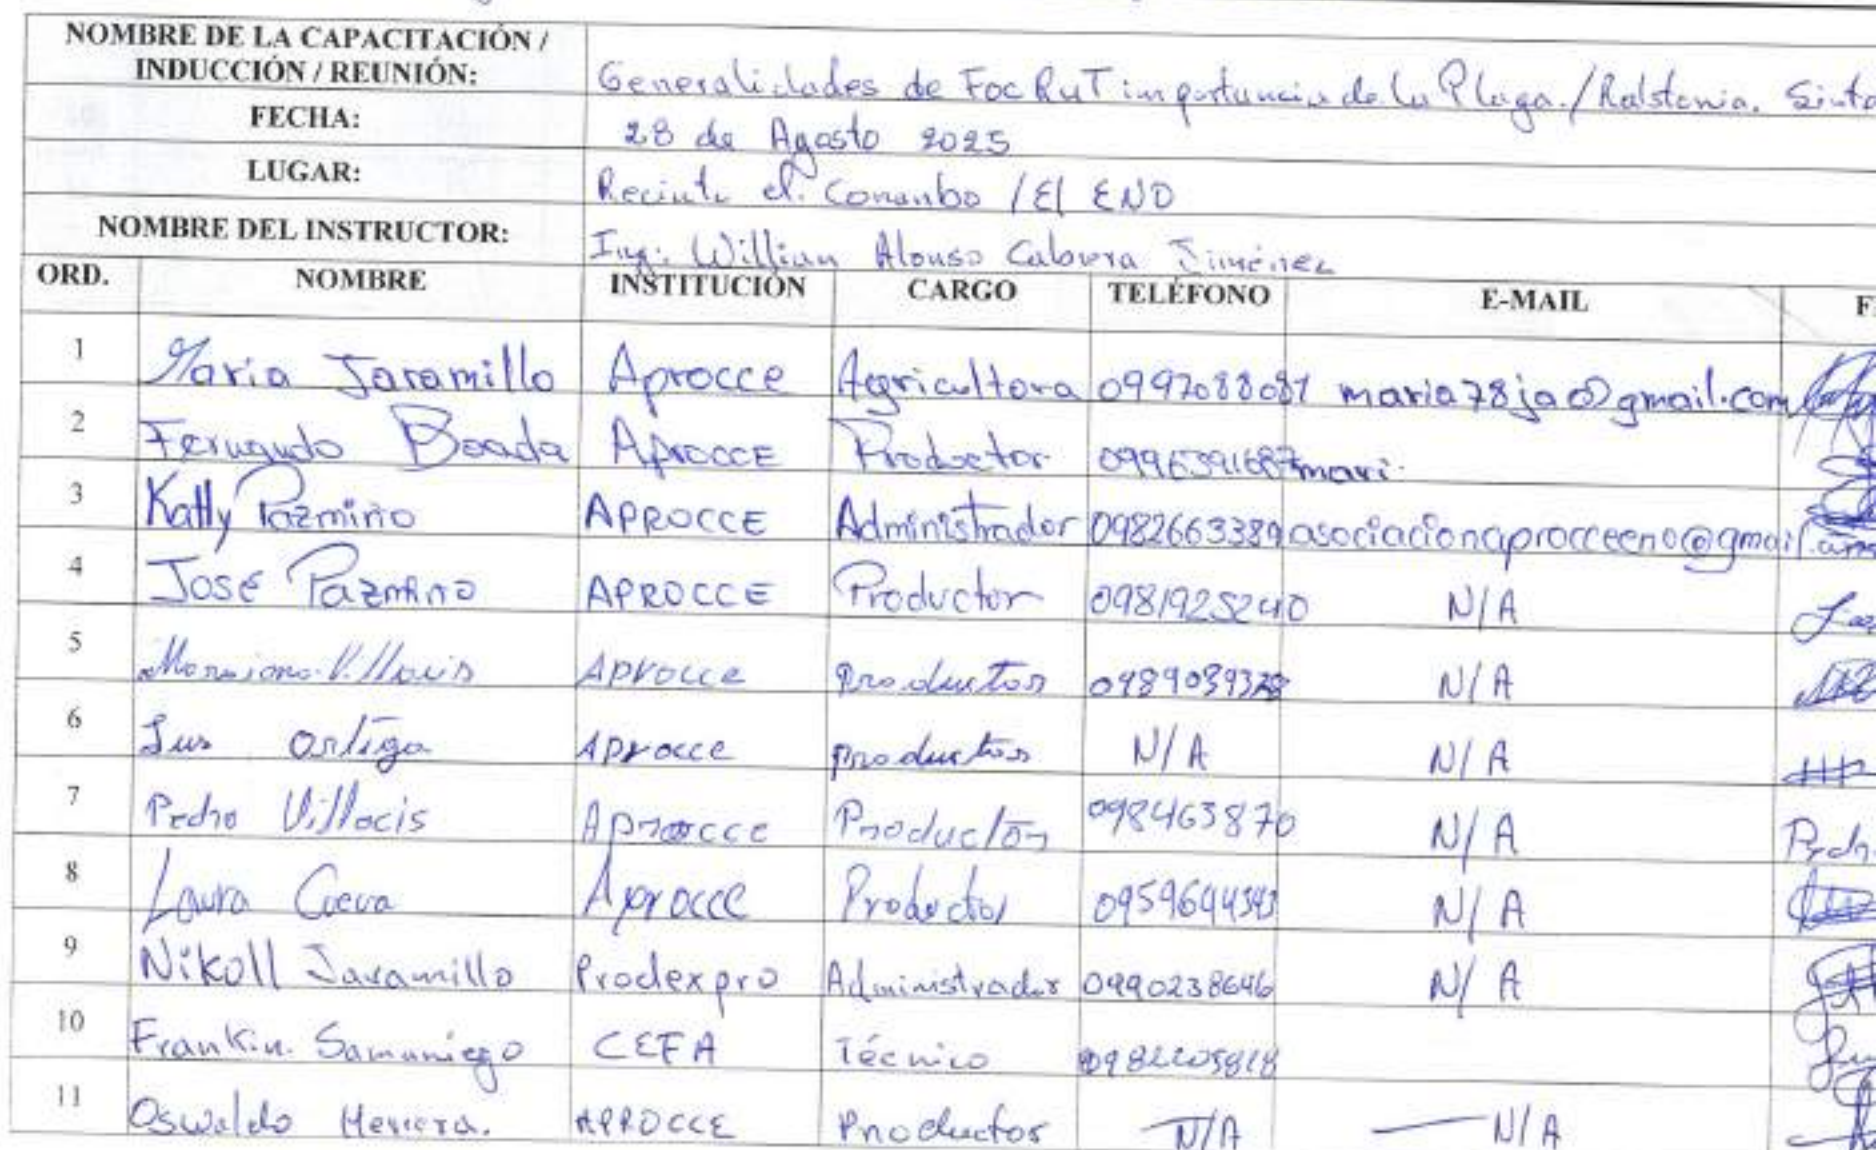 NOMBRE DE LA CAPACITACIÓN / INDUCCIÓN / REUNIÓN: Generalidades de Foc R4T importancia de la Plaga. / Ralstonia. Sinto
FECHA: 28 de Agosto 2025
LUGAR: Recinto el Conambo / El ENO
NOMBRE DEL INSTRUCTOR: Ing. Willian Alonso Cabrera Jiménez
ORD. NOMBRE INSTITUCIÓN CARGO TELÉFONO E-MAIL
1 Maria Jaramillo Aprocce Agricultora 0997088081 maria78ja@gmail.com
2 Fernando Boada Aprocce Productor 0996391687 mari.
3 Katty Pazmiño APROCCE Administrador 0982663389 asociacionaprocceeno@gmail.com
4 José Pazmino APROCCE Productor 0981925240 N/A
5 Villacis Aprocce Productor N/A
6 Luis Ortiga Aprocce productor N/A N/A
7 Pedro Villacis Aprocce Productor 098463870 N/A
8 Laura Cueva Aprocce Productor N/A
9 Nikoll Jaramillo Prodexpro Administrador 0990238646 N/A
10 Franklin. Samaniego CEFA Técnico
11 Oswaldo Herrera. APROCCE Productor N/A N/A